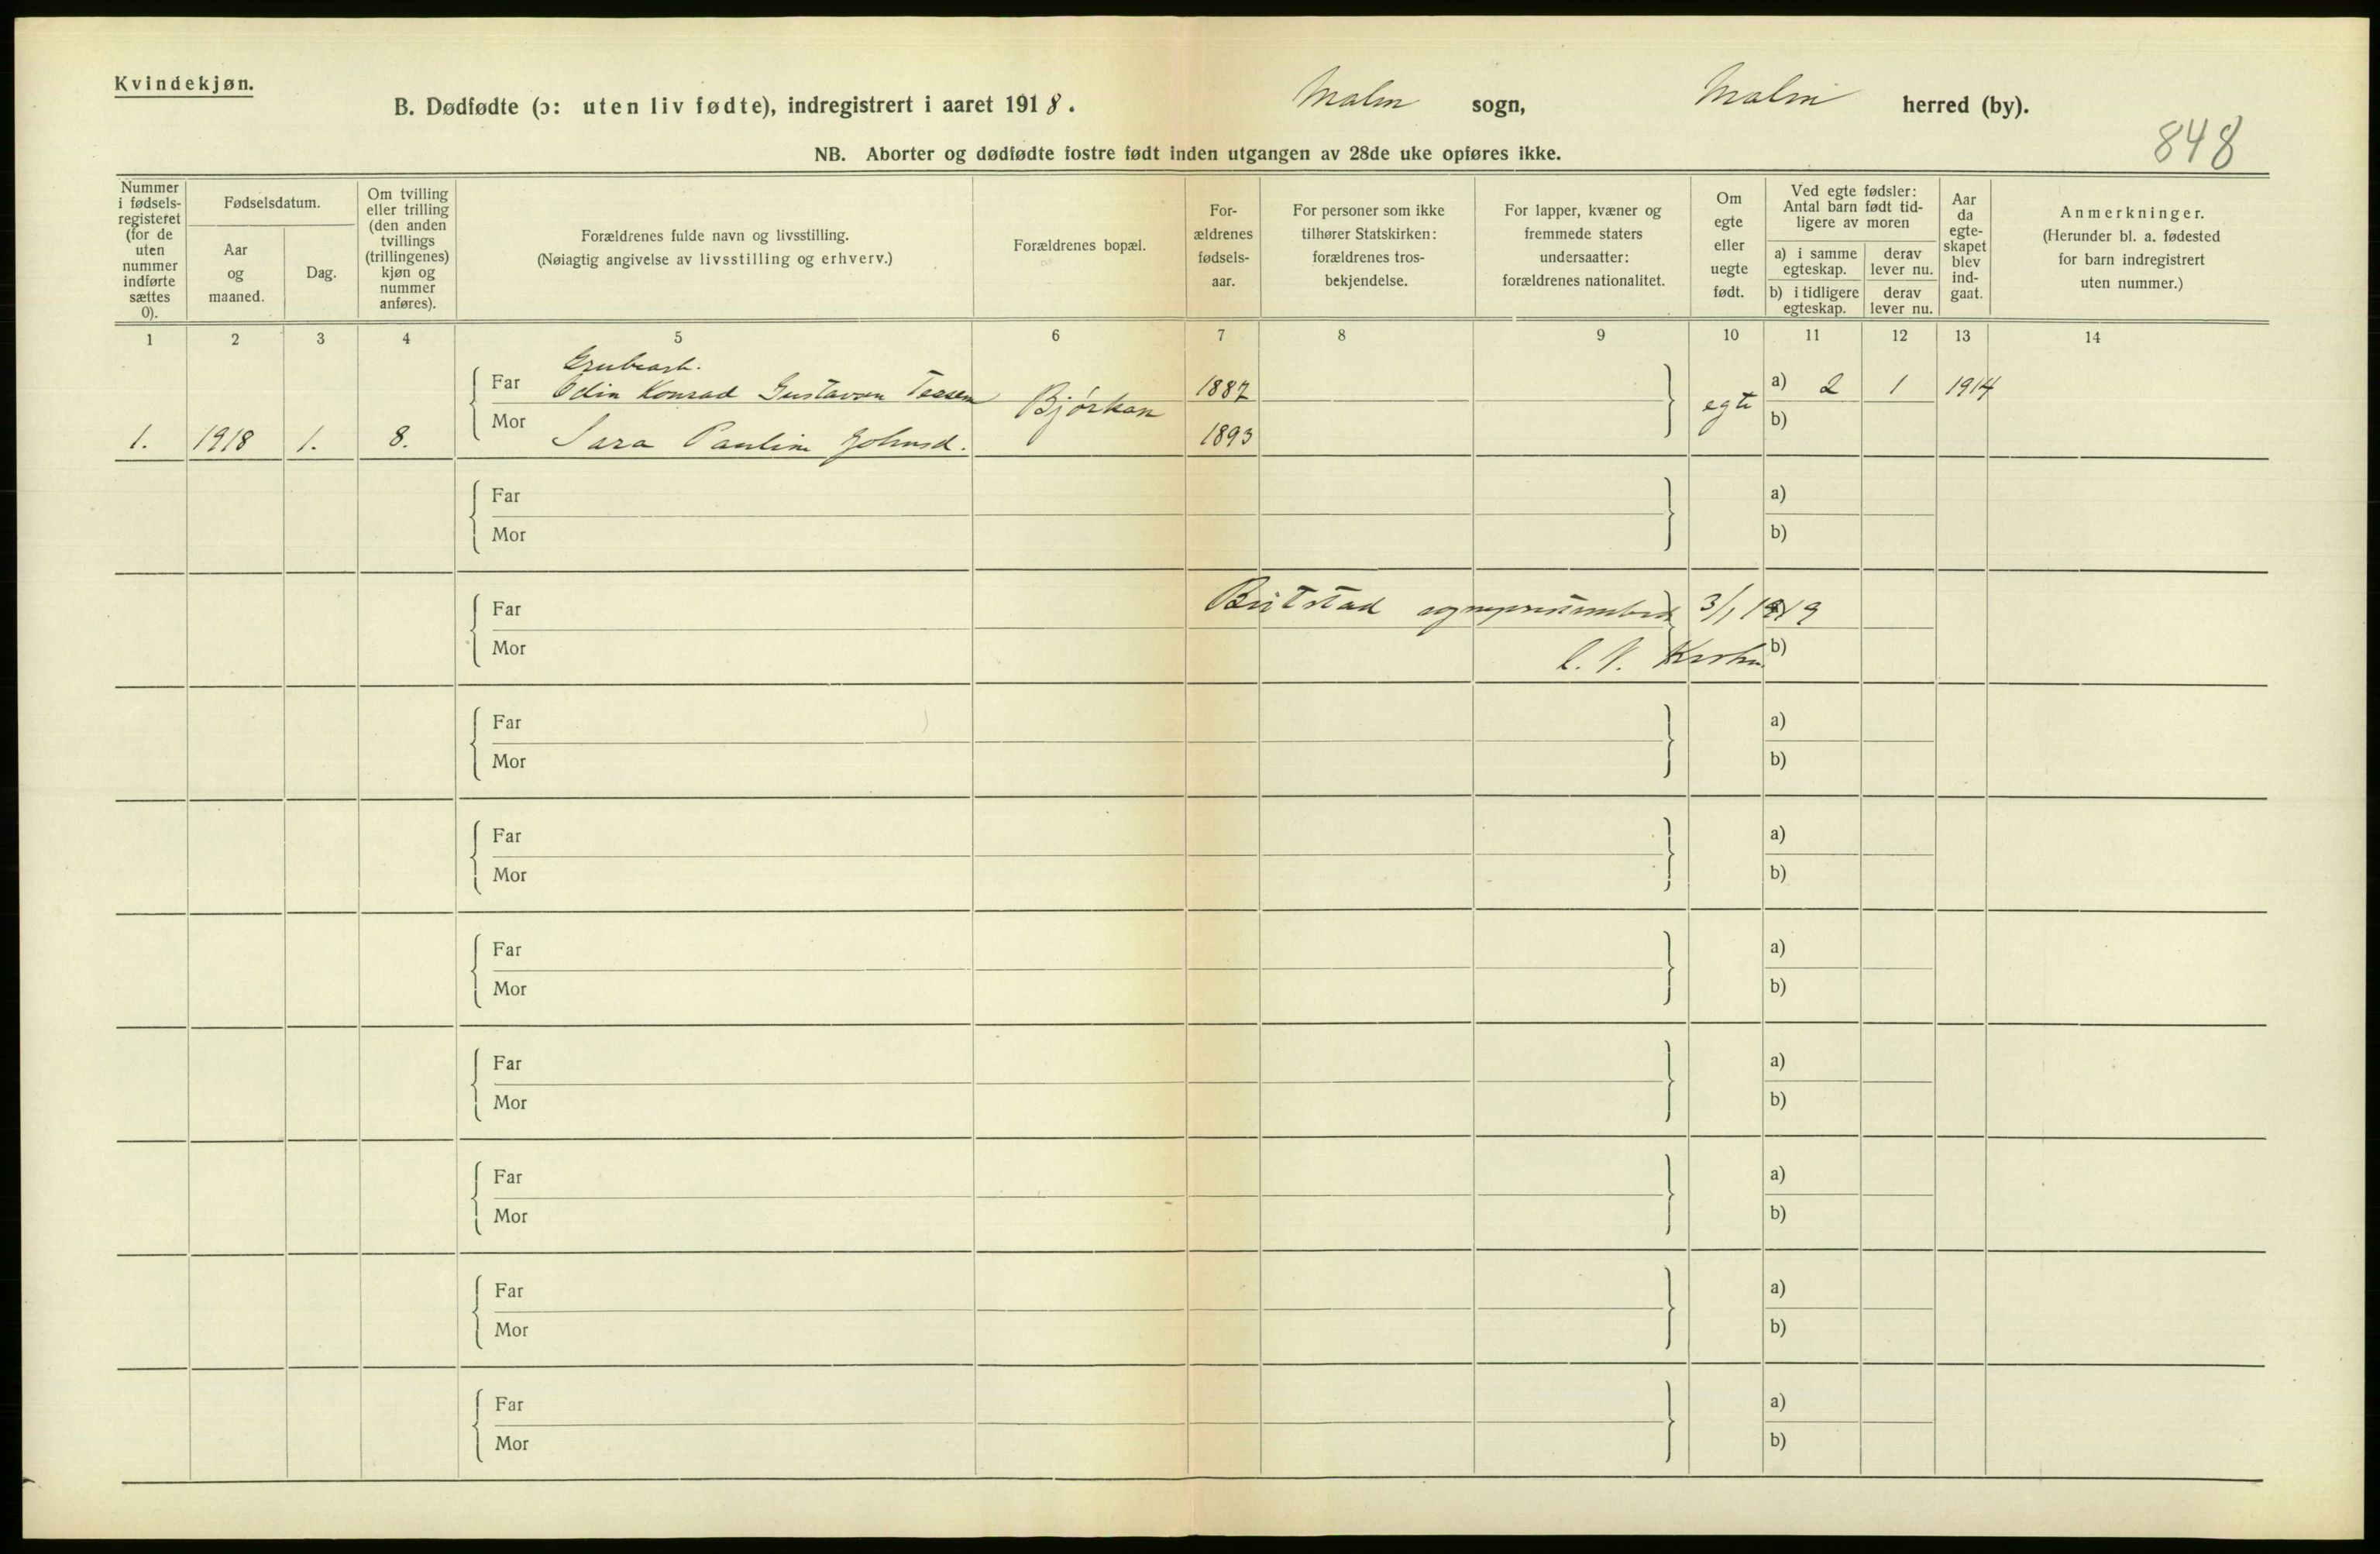 Kvindekjøn.
B. Dødfødte (ɔ: uten liv fødte), indregistrert i aaret 1918. Malm sogn, Malm herred (by).
848
NB. Aborter og dødfødte fostre født inden utgangen av 28de uke opføres ikke.
Nummer i fødsels-registeret (for de uten nummer indførte sættes 0).
Fødselsdatum.
Aar og maaned.
Dag.
Om tvilling eller trilling (den anden tvillings (trillingenes) kjøn og nummer anføres).
Forældrenes fulde navn og livsstilling.
(Nøiagtig angivelse av livsstilling og erhverv.)
Forældrenes bopæl.
For-ældrenes fødsels-aar.
For personer som ikke tilhører Statskirken: forældrenes tros-bekjendelse.
For lapper, kvæner og fremmede staters undersaatter: forældrenes nationalitet.
Om egte eller uegte født.
Ved egte fødsler: Antal barn født tid-ligere av moren
a) i samme egteskap.
derav lever nu.
b) i tidligere egteskap.
derav lever nu.
Aar da egte-skapet blev ind-gaat.
Anmerkninger.
(Herunder bl. a. fødested for barn indregistrert uten nummer.)
1 2 3 4 5 6 7 8 9 10 11 12 13 14
Grubearb.
Far Odin Konrad Gustavson 1887 a) 2 1 1914
Bjørkan egte
Mor b)
1. 1918 1. 8. Sara Pauline Johnsd. 1893
Far a)
Mor b)
Far Beitstad sogneprestembede 3/1 1919
Mor b)
Far a)
Mor b)
Far a)
Mor b)
Far a)
Mor b)
Far a)
Mor b)
Far a)
Mor b)
Far a)
Mor b)
Far a)
Mor b)